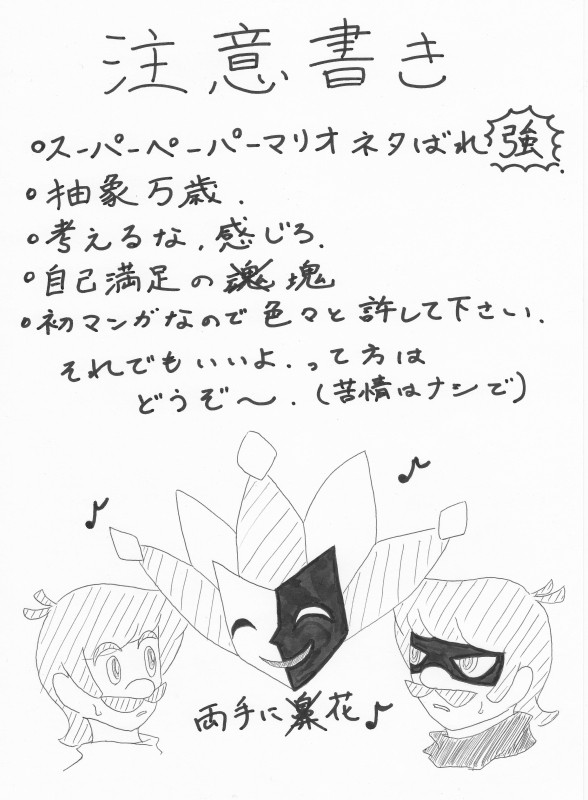 注意書き
・スーパーペーパーマリオ ネタばれ 強
・抽象万歳.
・考えるな、感じろ.
・自己満足の 塊
・初マンガなので 色々と 許して下さい.
それでもいいよ.って方は
どうぞ〜.(苦情はナシで)
両手に 花♪